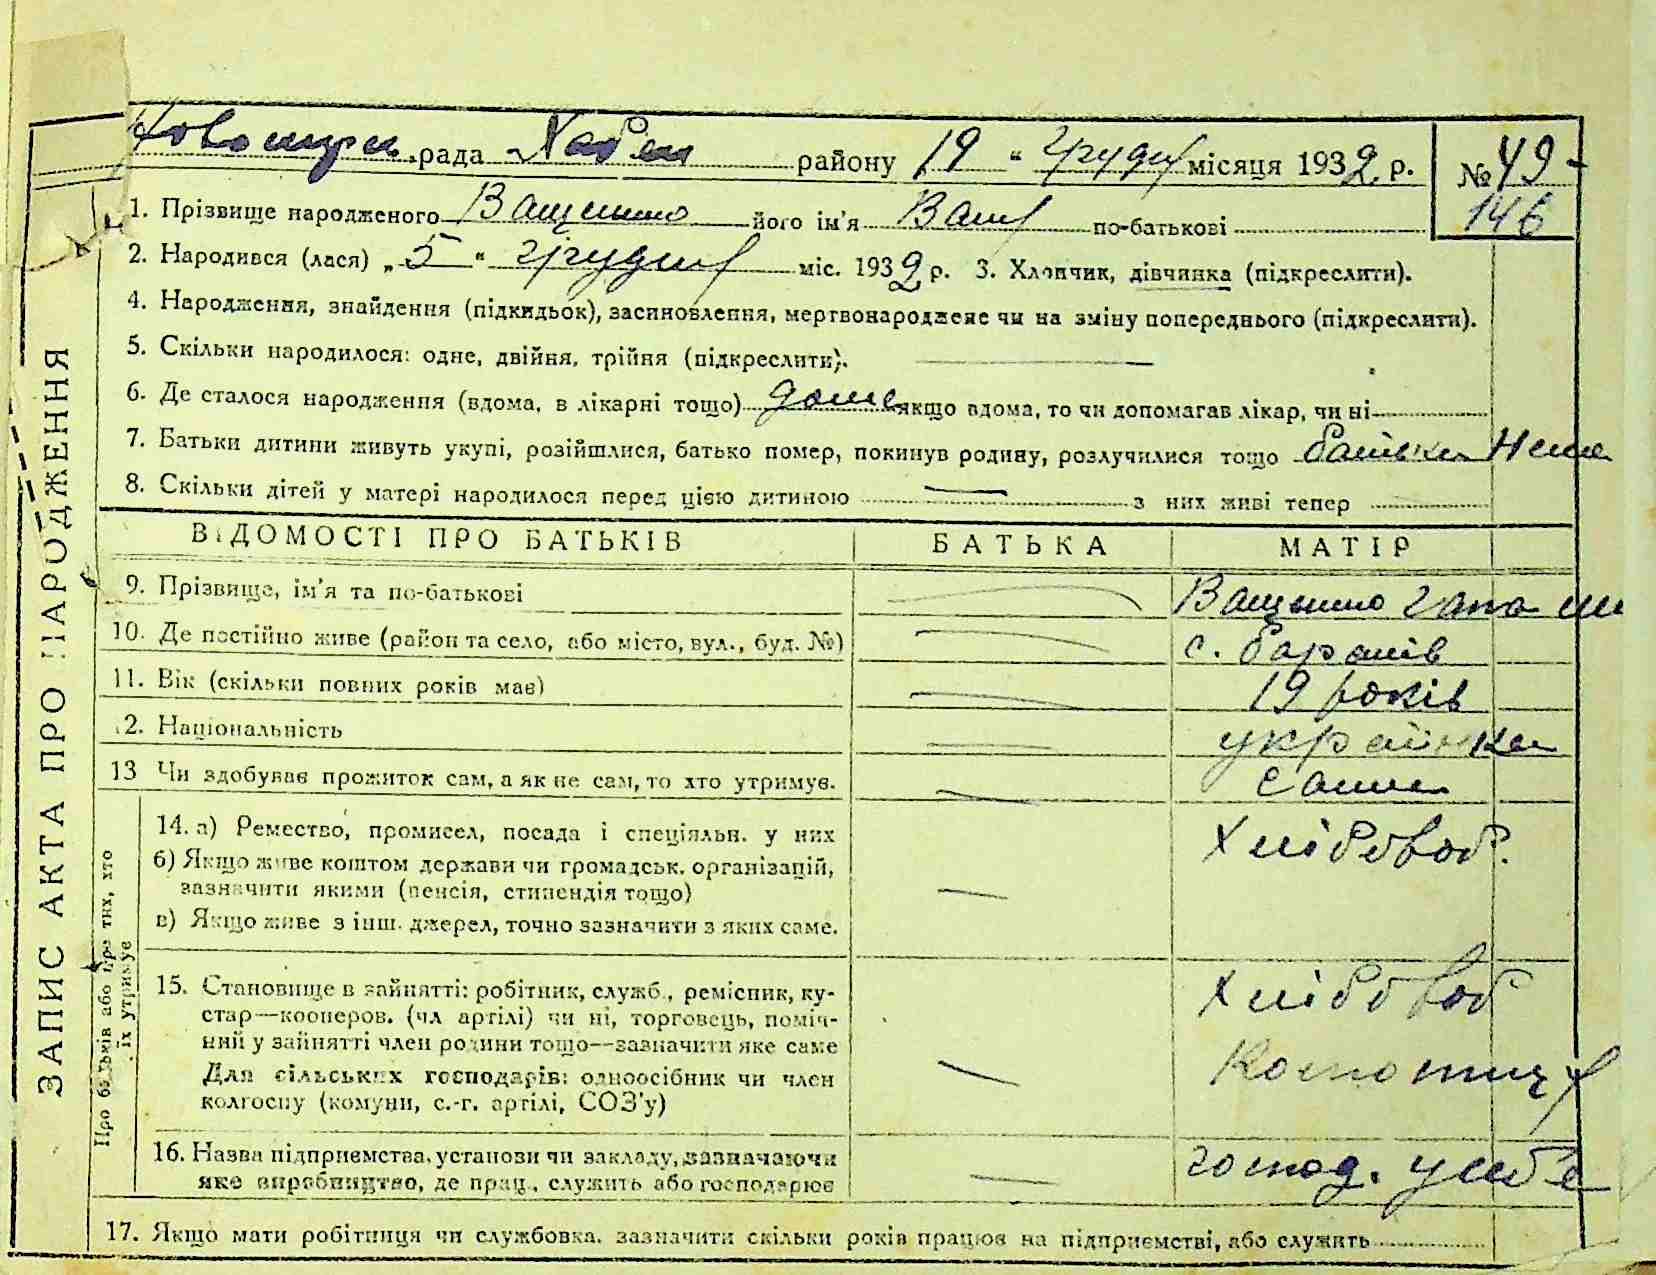 рада району 19 " місяця 1932 р. № 49
146
1. Прізвище народженого Ващенко його ім'я по-батькові
2. Народився (лася) „ 5 " грудня міс. 1932 р. 3. Хлопчик, дівчинка (підкреслити).
4. Народження, знайдення (підкидьок), засиновлення, мертвонароджене чи на зміну попереднього (підкреслити).
5. Скільки народилося: одне, двійня, трійня (підкреслити).
6. Де сталося народження (вдома, в лікарні тощо) дома якщо вдома, то чи допомагав лікар, чи ні
7. Батьки дитини живуть укупі, розійшлися, батько помер, покинув родину, розлучилися тощо батька нема
8. Скільки дітей у матері народилося перед цією дитиною — з них живі тепер
ВІДОМОСТІ ПРО БАТЬКІВ БАТЬКА МАТІР
9. Прізвище, ім'я та по-батькові — Ващенко
10. Де постійно живе (район та село, або місто, вул., буд. №) — с.
11. Вік (скільки повних років має) — 19 років
12. Національність — українка
13 Чи здобуває прожиток сам, а як не сам, то хто утримує. — сама
14. а) Ремество, промисел, посада і спеціяльн. у них — Хлібороб.
б) Якщо живе коштом держави чи громадськ. організацій,
зазначити якими (пенсія, стипендія тощо)
в) Якщо живе з інш. джерел, точно зазначити з яких саме.
15. Становище в зайнятті: робітник, служб., реміспик, ку- Хлібороб
стар—кооперов. (чл артілі) чи ні, торговець, поміч-
ний у зайнятті член родини тощо—зазначити яке саме
Для сільських господарів: одноосібник чи член —
колгоспу (комуни, с.-г. артілі, СОЗ'у)
16. Назва підприємства, установи чи закладу, зазначаючи — господ. у себе
яке виробництво, де прац., служить або господарює
17. Якщо мати робітниця чи службовка, зазначити скільки років працює на підприємстві, або служить
ЗАПИС АКТА ПРО НАРОДЖЕННЯ
Про батьків або про тих, хто
їх утримує